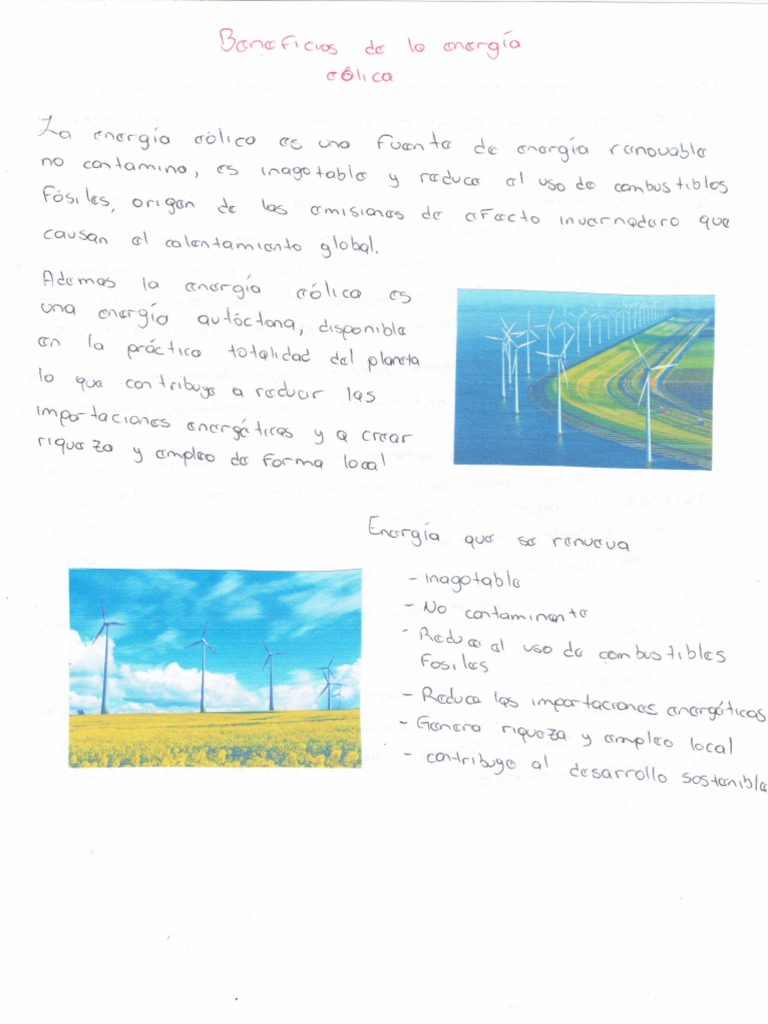 Beneficios de la energía
eólica
La energía eólica es una fuente de energía renovable
no contamina, es inagotable y reduce el uso de combustibles
fósiles, origen de las emisiones de efecto invernadero que
causan el calentamiento global.
Ademas la energía eólica es
una energía autóctona, disponible
en la práctica totalidad del planeta
lo que contribuye a reducir las
importaciones energéticas y a crear
riqueza y empleo de forma local
Energía que se renueva
- inagotable
- No contaminante
- Reduce el uso de combustibles
fosiles
- Reduce las importaciones energéticas
- Genera riqueza y empleo local
- contribuye al desarrollo sostenible